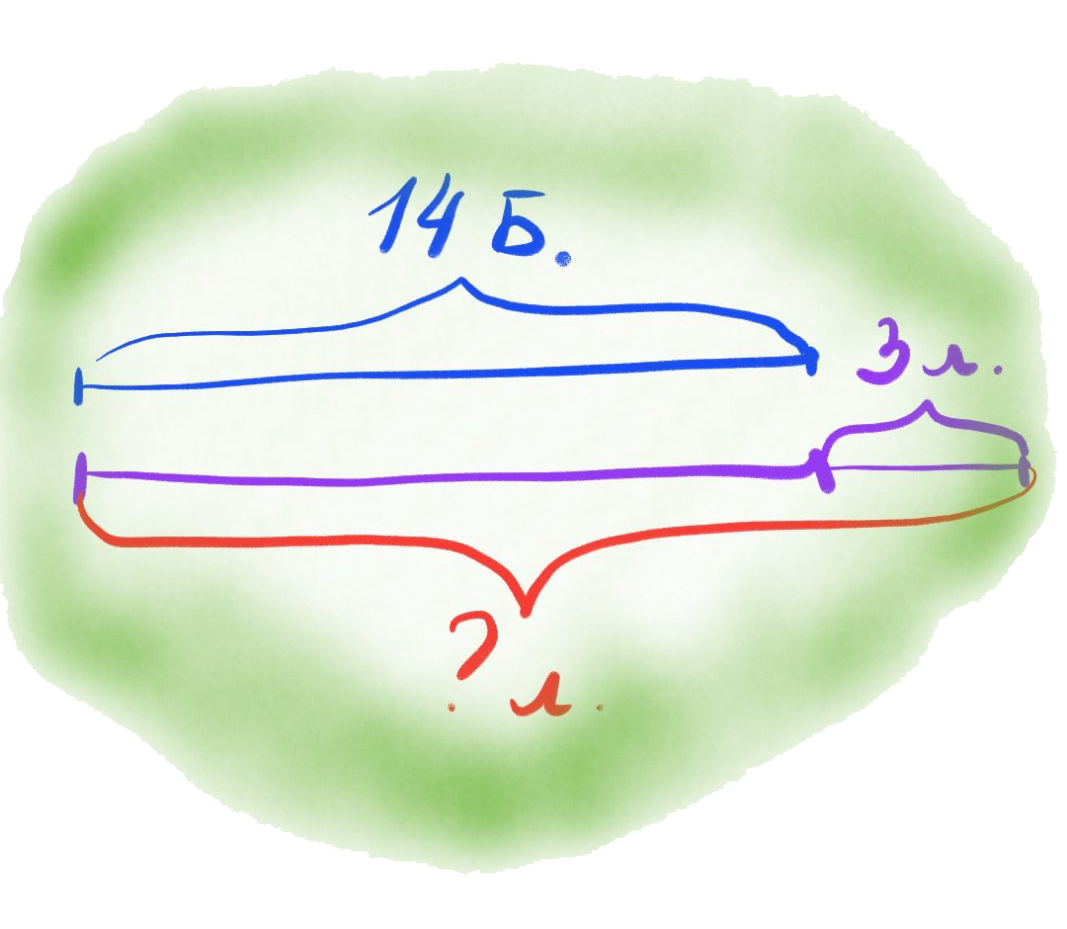 14 Б.
3 л.
? л.